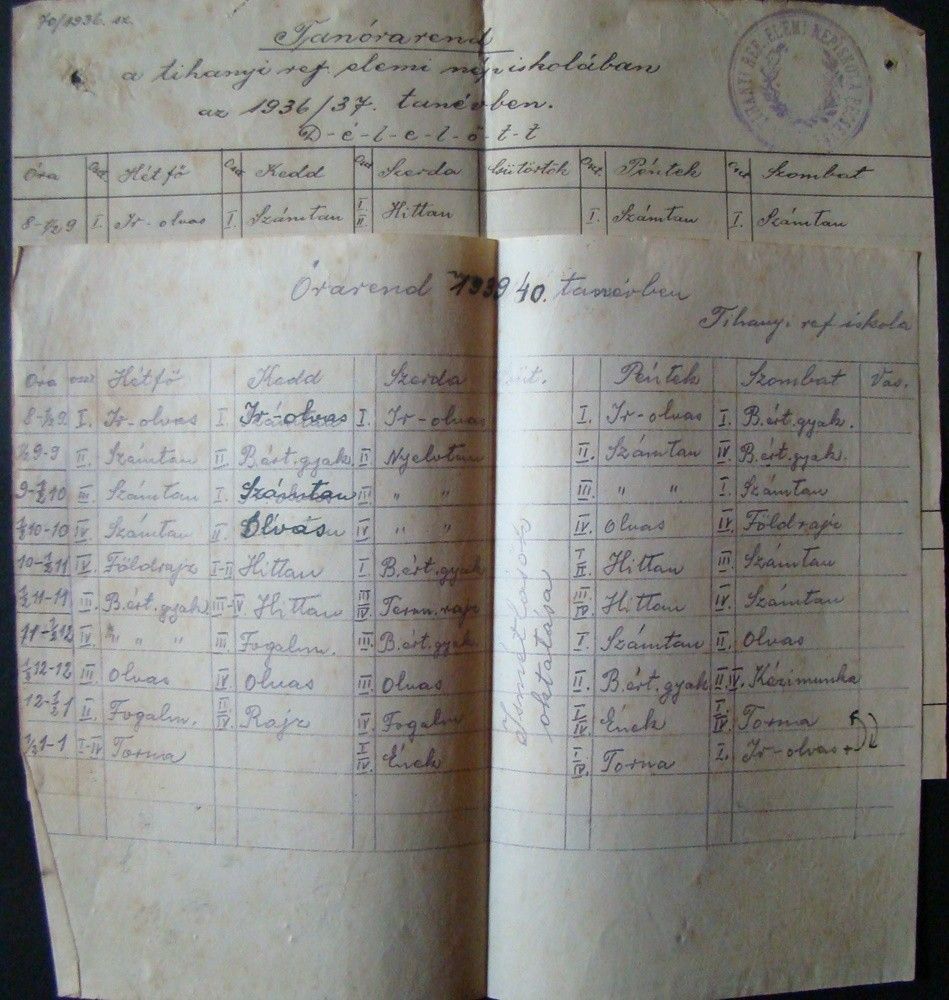 70/1936. sz.
Tanórarend
a tihanyi ref. elemi népiskolában
az 1936/37. tanévben.
D-é-l-e-l-ő-t-t
Óra Oszt. Hétfő Oszt. Kedd Oszt. Szerda Csütörtök Oszt. Péntek Oszt. Szombat
8-½9 I. Ir-olvas I. Számtan I. II. Hittan I. Számtan I. Számtan
Órarend 1939/40. tanévben
Tihany. ref iskola
Óra oszt Hétfő Kedd Szerda Csüt. Péntek Szombat Vas.
8-½9 I. Ir-olvas I. Ir-olvas I. Ir-olvas I. Ir-olvas I. B.ért.gyak.
½9-9 II. Számtan II. B.ért.gyak. II. Nyelvtan II. Számtan IV. B.ért.gyak.
9-½10 III. Számtan I. Számtan III. " " III. " " I. Számtan
½10-10 IV. Számtan II. Olvas IV. " " IV. Olvas IV. Földrajz
10-½11 IV. Földrajz I-II Hittan I. B.ért.gyak I. II. Hittan III. Számtan
½11-11 III. B.ért.gyak III-IV Hittan III. IV. Term.rajz III. IV. Hittan IV. Számtan
11-½12 IV " " " III. Fogalm. III. B.ért.gyak. I. Számtan II. Olvas
½12-12 III Olvas IV. Olvas II Olvas II. B.ért.gyak II. IV. Kézimunka
12-½1 II. Fogalm. II. IV. Rajz IV Fogalm I. IV. Ének I. IV. Torna
½1-1 I-IV Torna I. IV. Ének I. IV. Torna I. Ir-olvas +
Ismétlősök
oktatása